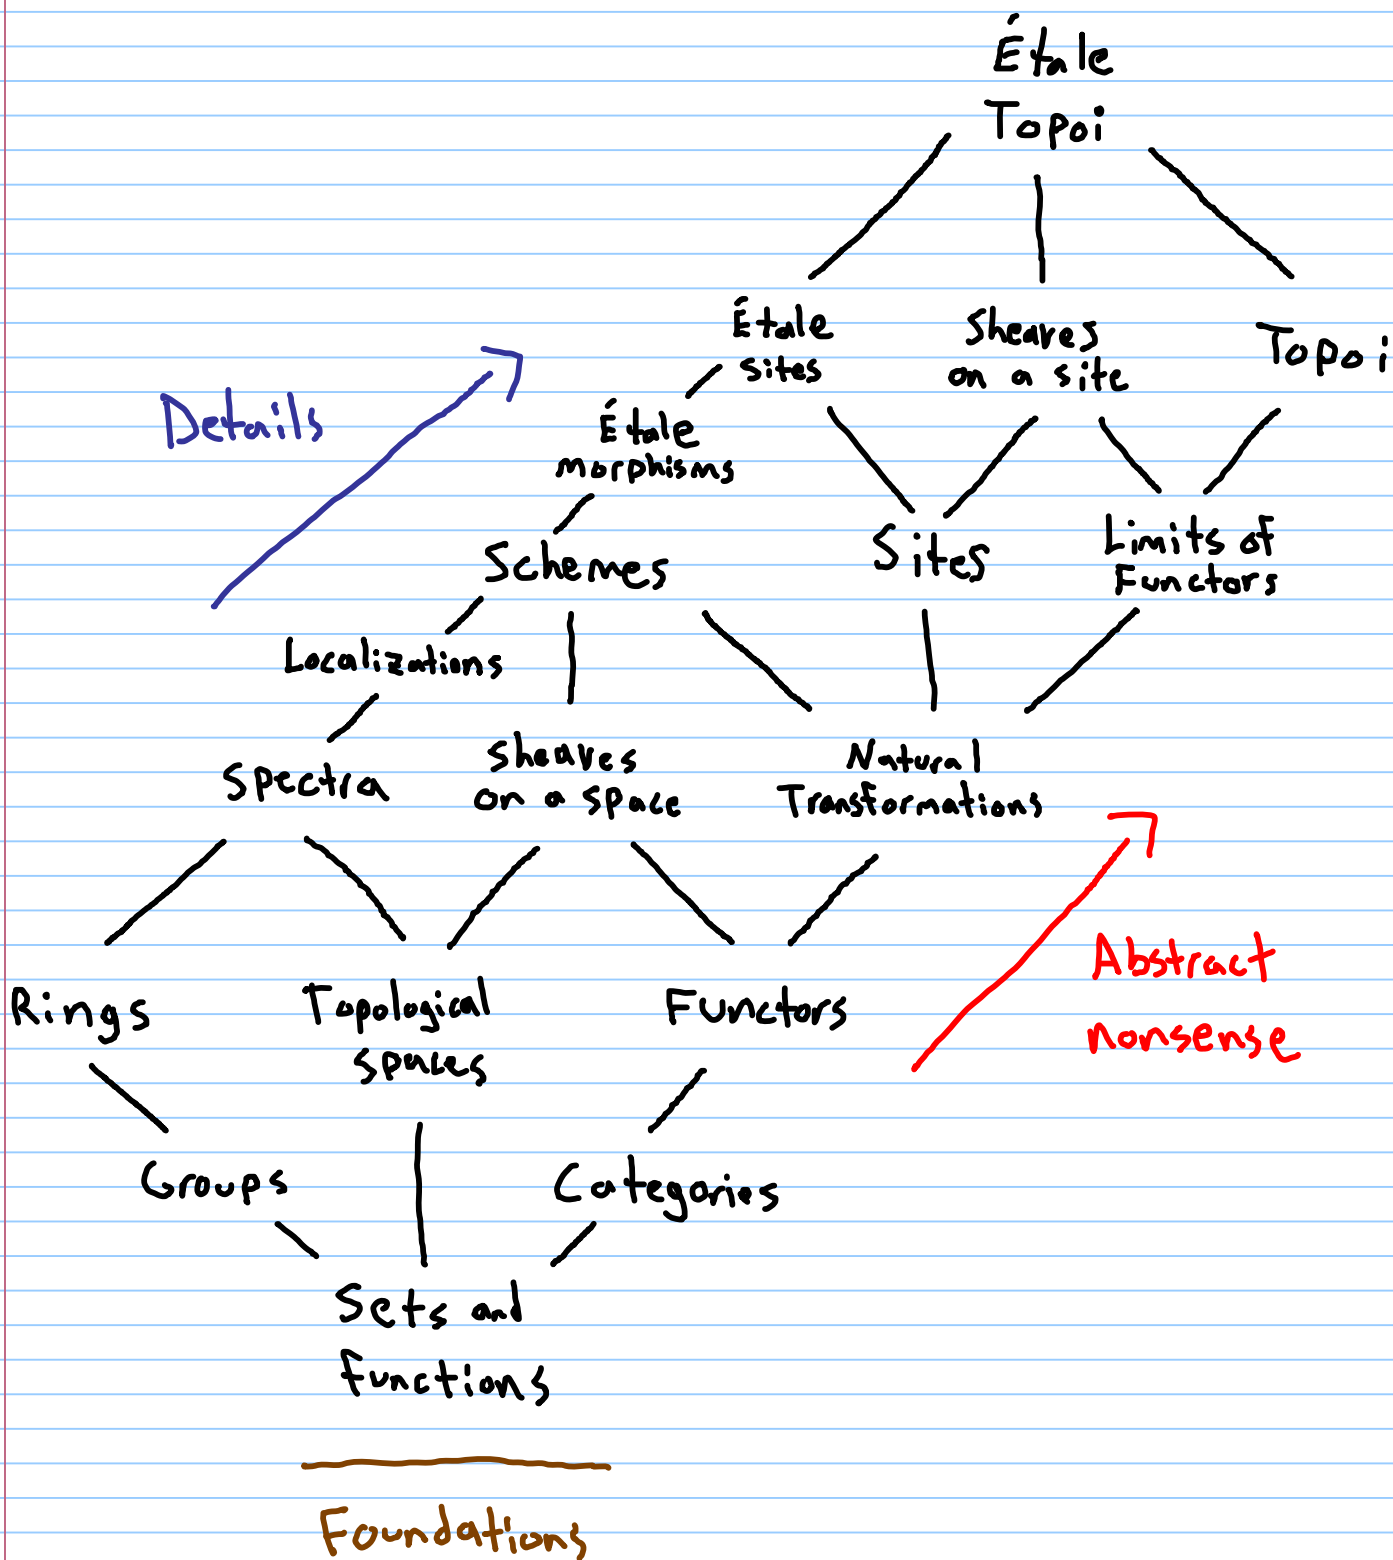 Étale
Topoi
Étale
sites
Sheaves
on a site
Topoi
Details
Étale
morphisms
Schemes
Sites
Limits of
Functors
Localizations
Spectra
Sheaves
on a space
Natural
Transformations
Rings
Topological
spaces
Functors
Abstract
nonsense
Groups
Categories
Sets and
functions
Foundations